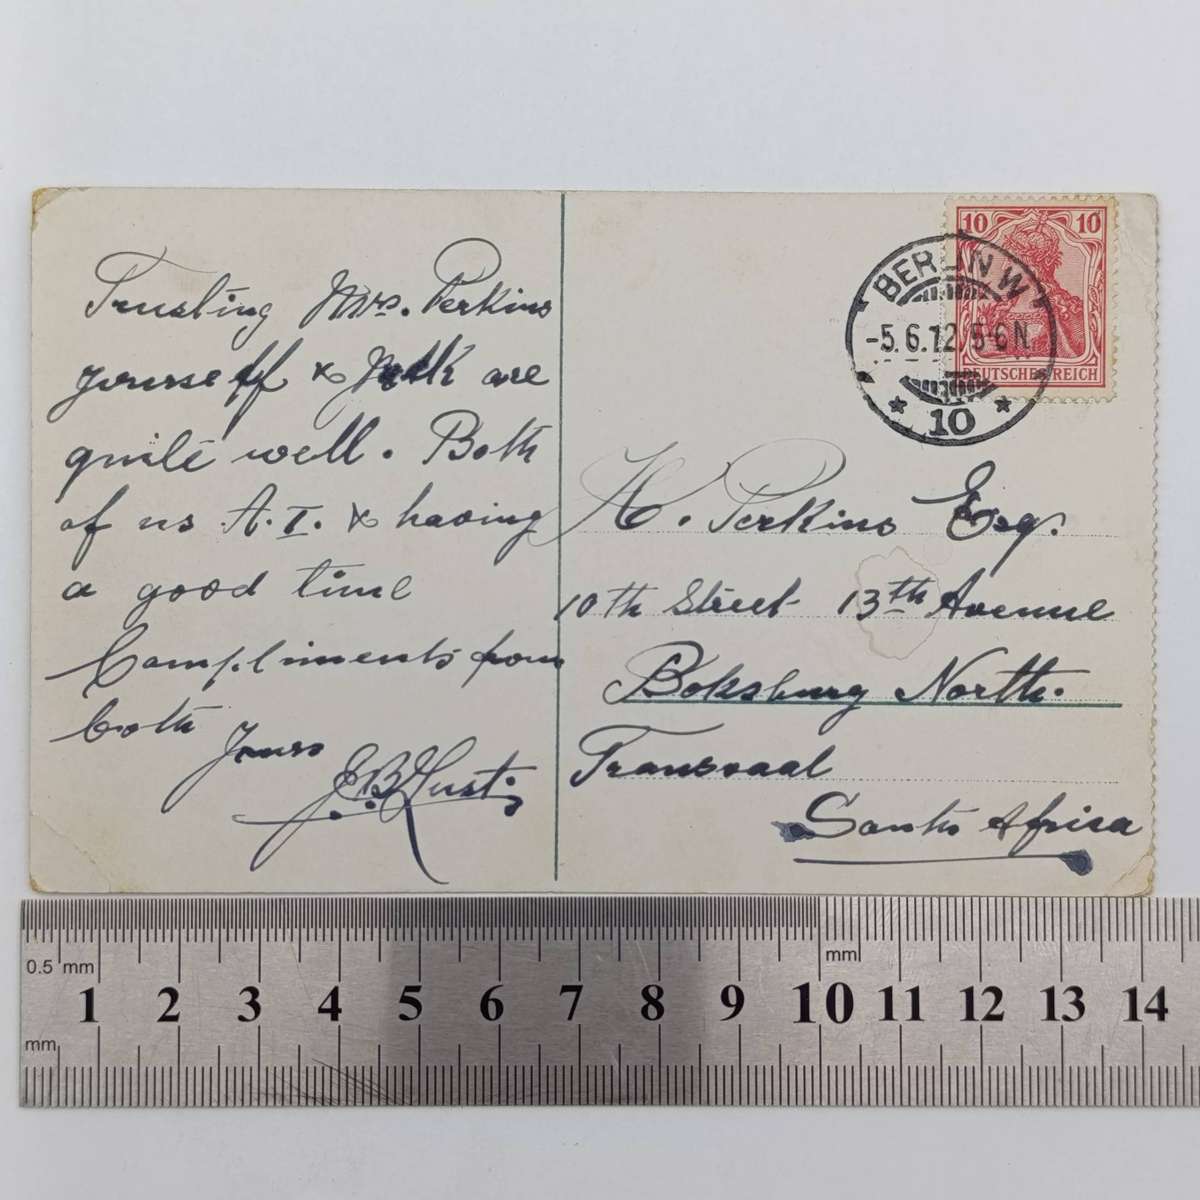 Trusting Mrs. Perkins
yourself & Jack are
quite well. Both
of us A.I. & having
a good time
Compliments from
both
Yours
J.B.
10 10
DEUTSCHES REICH
BERLIN W
-5.6.12 5-6 N.
* 10 *
H. Perkins Esq.
10th Street 13th Avenue
Boksburg North.
Transvaal
South Africa
0.5 mm
mm
1 2 3 4 5 6 7 8 9 10 11 12 13 14
mm